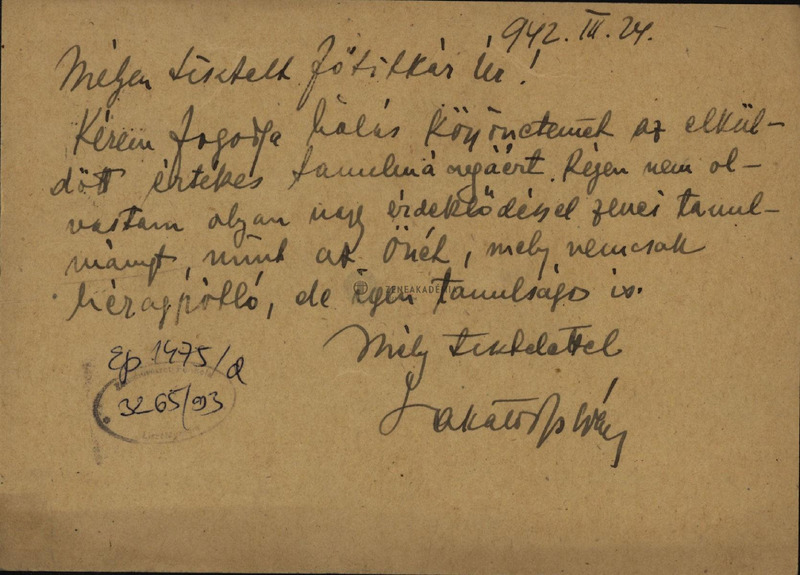 942. III. 24.
Mélyen tisztelt Főtitkár Úr!
Kérem fogadja hálás köszönetemet az elkül-
dött értékes tanulmányáért. Régen nem ol-
vastam olyan nagy érdeklődéssel zenei tanul-
mányt, mint az Önét, mely nemcsak
hézagpótló, de igen tanulságos is.
ZENEAKADÉMIA
Mély tisztelettel
Lakatos István
Ep 1475/a
3265/93